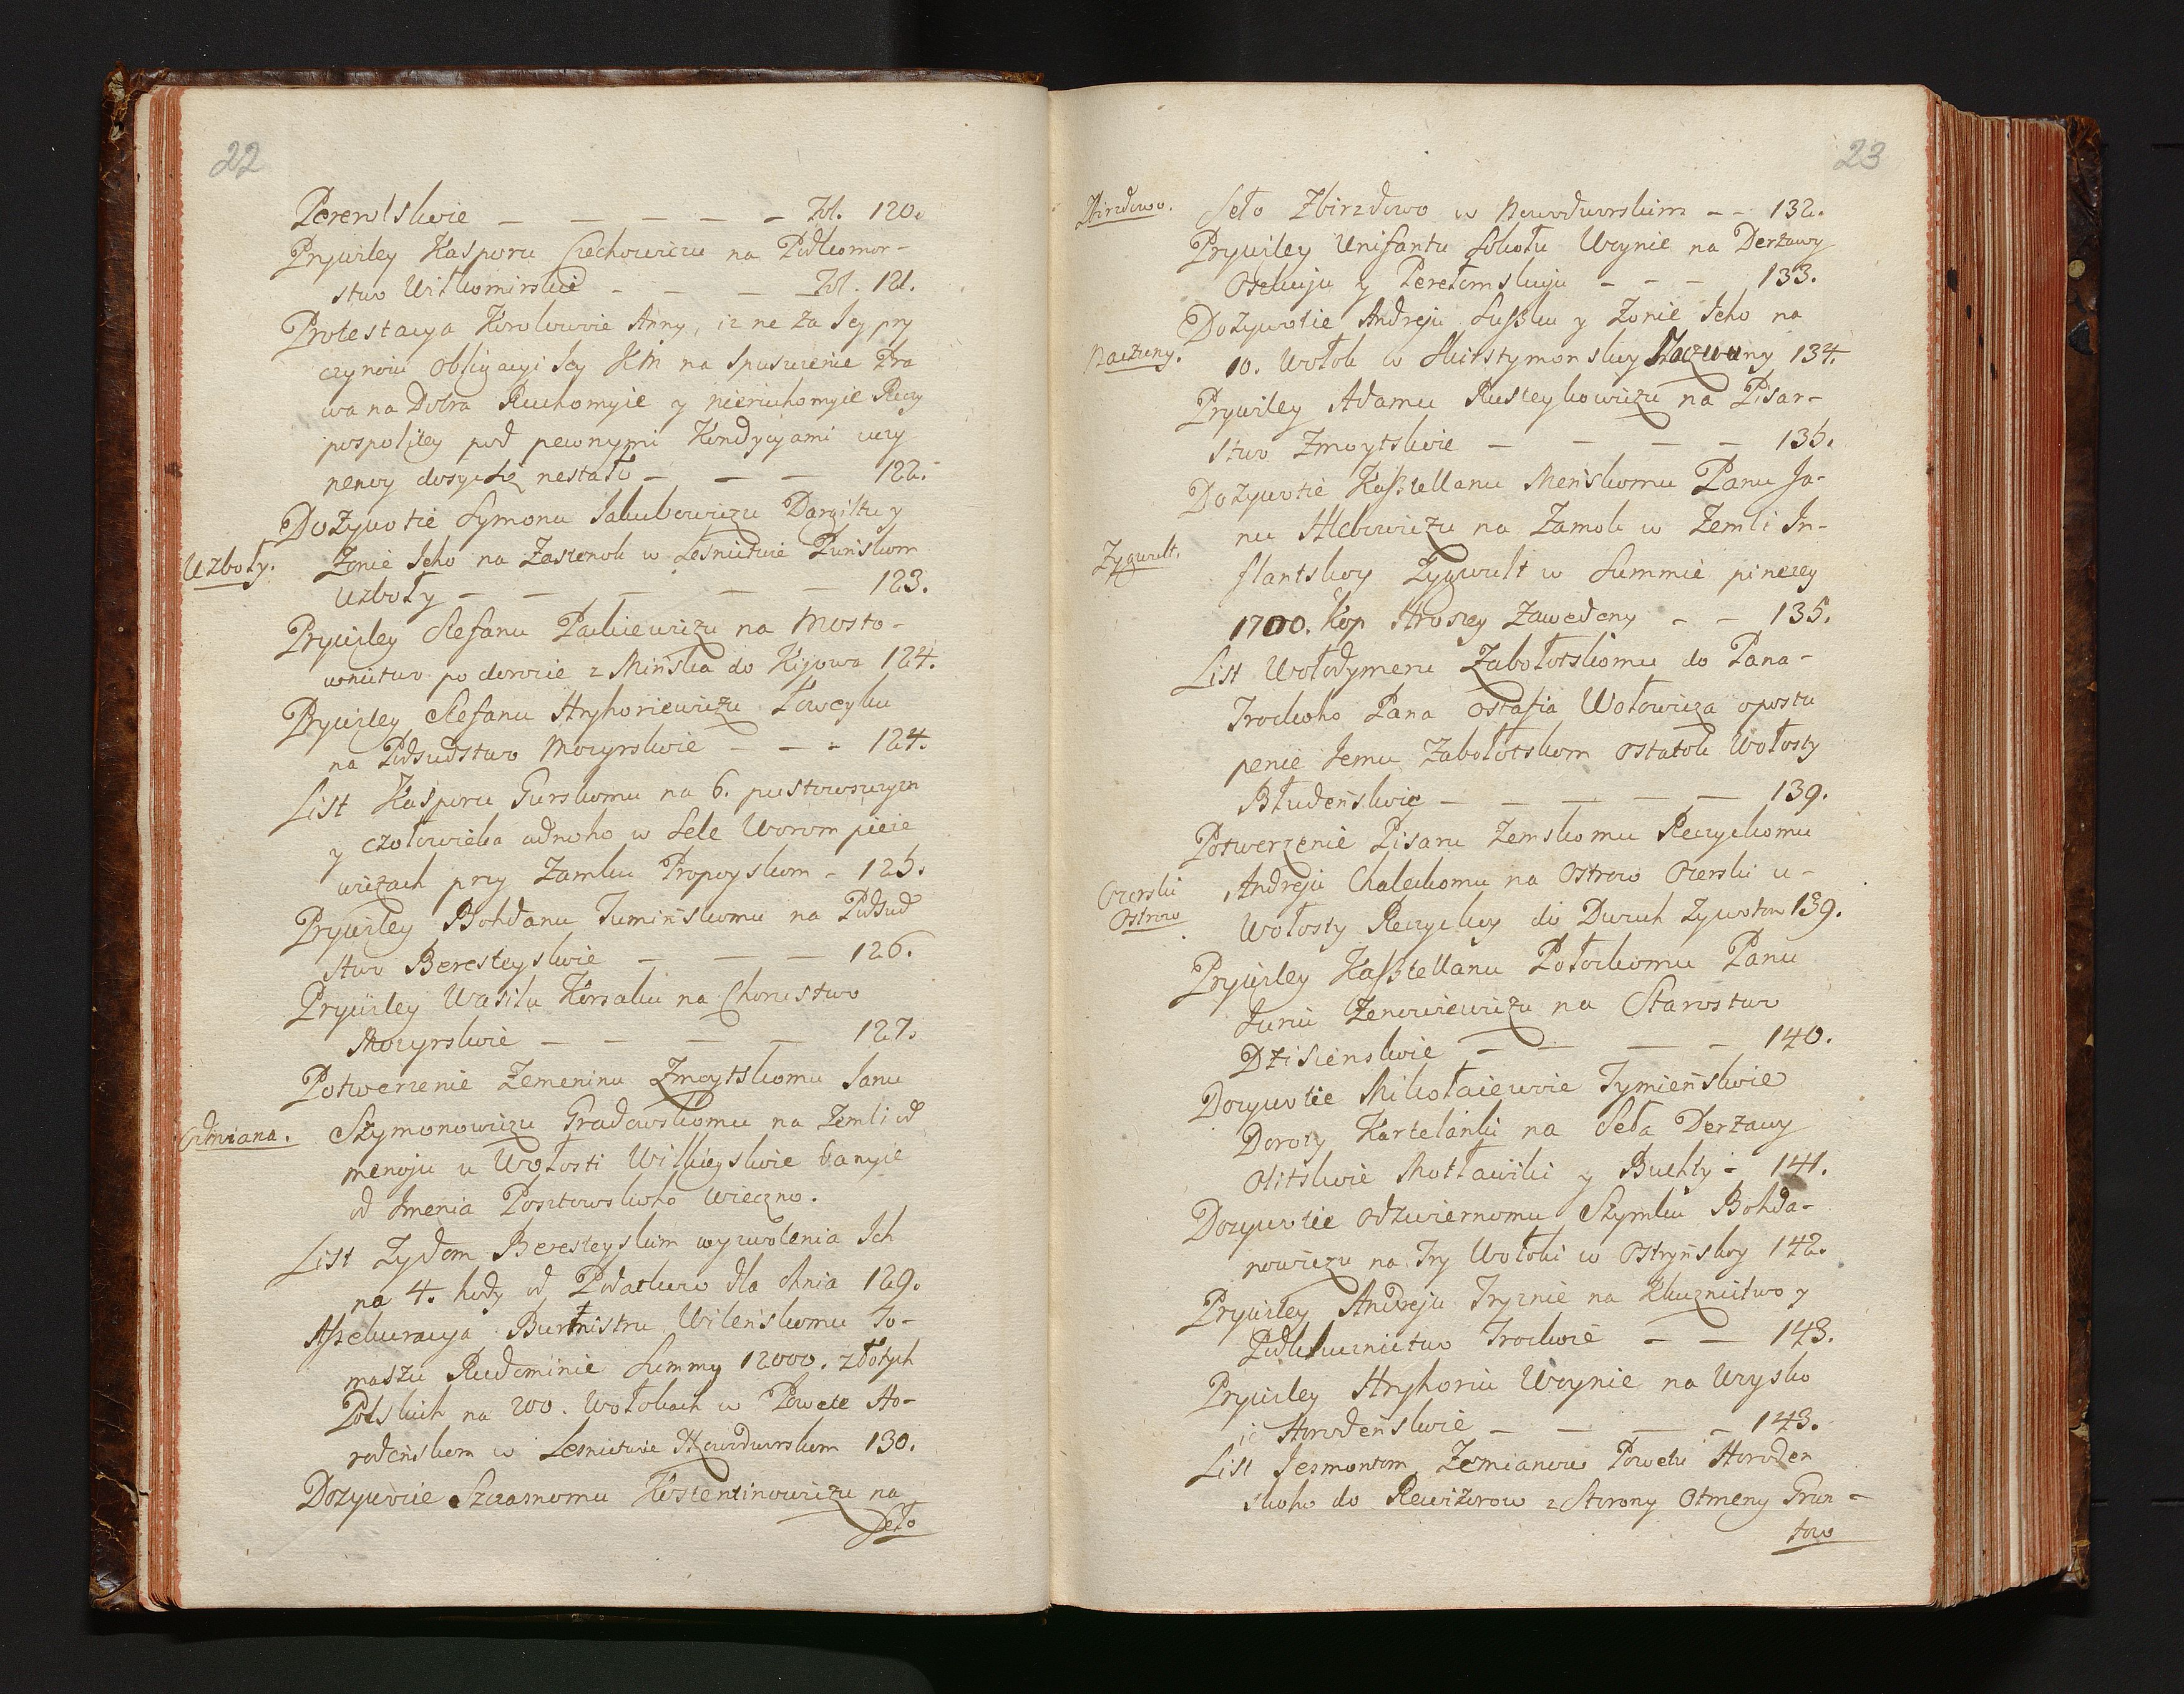 22
Perewolskoie — — — — — Fol. 120.
Prywiley Kasporu Ciechowiczu na Podkomor-
stwo Wiłkomirskie — — — Fol. 121.
Protestacya Korolowoie Anny, iz ne za Jey pry
czynoiu obligacyi Jey Kł M na spuszczenie Pra
wa na Dobra Ruchomyie y nieruchomyie Reczy
pospolitey pod pewnymi Kondycyami uczy
nenoy dosyć nestało — — — 122.
Dożywotie Symonu Jakubowiczu Dargiłtu y
Użboły. Żonie Jeho na Zascenok w Leśnictwie Puńskom
Użboły — — — — — 123.
Prywiley Stefanu Packiewiczu na Mosto-
wnictwo po dorozie z Mińska do Kijowa 124.
Prywiley Stefanu Hryhoriewiczu Łoweyku
na Podsudstwo Mozyrskoie — — — 124.
List Kasporu Gurskomu na 6. pustowszczyzn
y czołowieka odnoho w Sele Worom pieie
wiczach przy Zamku Propoyskom - 125.
Prywiley Bohdanu Tumińskomu na Podsud
stwo Beresteyskoie — — — 126.
Prywiley Wasilu Korsaku na Chorustwo
Mozyrskoie — — — — 127.
Potwerzenie Zemeninu Żmoytskomu Janu
Odmiana. Szymonowiczu Gradowskomu na Zemli od
menoju u Wołosti Wilkieyskoie banyie
od Imenia Posztowskoho wieczno.
List Żydom Beresteyskim wyzwolenia Ich
na 4. hody od Podatkow dla ohnia 129.
Assekuracya Burmistru Wileńskomu To-
maszu Rudominie Summy 12000. złotych
Polskich na 200. Wołokach w Powete Ho-
rodeńskom w Lesnictwie Nowodworskom 130.
Dożywocie Szczasnomu Kostentinowiczu na
Seło
23
Zbirzdowo. Seło Zbirzdowo w Nowodworskim - - 132.
Prywiley Unifantu Sokołu Woynie na Derżawy
Ozskuju y Perełomskuju — — — 133.
Dożywotie Andreju Susżku y Żonie Jeho na
Naczuny. 10. Wołok w Skirstymonskoy Naczuny 134.
Prywiley Adamu Rusteykowiczu na Pisar-
stwo Żmoytskoie — — — — 135.
Dożywotie Kasztellanu Menskomu Panu Ja-
nu Hlebowiczu na Zamok w Zemli In-
Zygwult. flantskoy Zygwult w Summie pineżey
1700. Kop Hroszey Zawedeny - - 135.
List Wołodymeru Zabołotskomu do Pana-
Trockoho Pana Ostafia Wołowicza o postu
penie Jemu Zabołotskom ostatok Wołosty
Błudeńskoie — — — — — 139.
Potwerzenie Pisaru Zemskomu Reczyckomu
Ozerski Andreju Chaleckomu na Ostrow Ozerski u-
Ostrow Wołosty Reczyckoy do Dwuch Żywotow 139.
Prywiley Kasztellanu Połockomu Panu
Juriu Zenowiewiczu na Starostwo
Dzisienskoie — — — — 140.
Dożywotie Mikołaiewoie Tymieńskoie
Doroty Kartelanki na Seła Derżawy
Olitskoie Motławiki y Buchty - 141.
Dożywotie Odzwiernomu Szymku Bohda-
nowiczu na Try Wołoki w Ostryńskoy 142.
Prywiley Andreju Tryznie na Kluznictwo y
Podkluznictwo Trockoie — — 143.
Prywiley Hryhoriu Woynie na Woysko
ie Horodeńskoie — — — — 143.
List Jesmontom Zemianow Powetu Horoden
skoho do Rewizorow z Storony Otmeny Grun-
tow